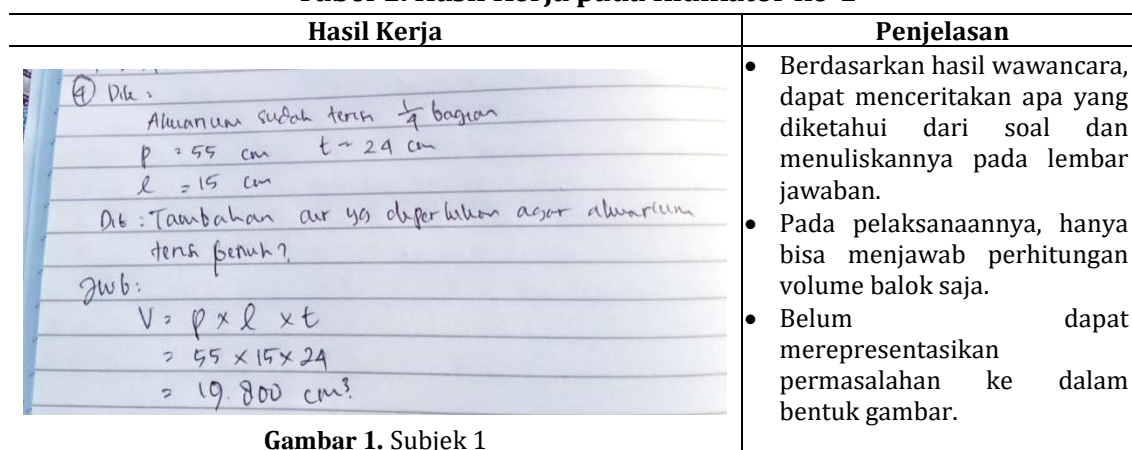 Hasil Kerja
Penjelasan
④ Dik :
Akuarium sudah terisi 1/4 bagian
p = 55 cm t = 24 cm
l = 15 cm
Dit : Tambahan air yg diperlukan agar akuarium
terisi penuh?
Jwb:
V = p x l x t
= 55 x 15 x 24
= 19.800 cm³.
Gambar 1. Subjek 1
• Berdasarkan hasil wawancara,
dapat menceritakan apa yang
diketahui dari soal dan
menuliskannya pada lembar
jawaban.
• Pada pelaksanaannya, hanya
bisa menjawab perhitungan
volume balok saja.
• Belum dapat
merepresentasikan
permasalahan ke dalam
bentuk gambar.